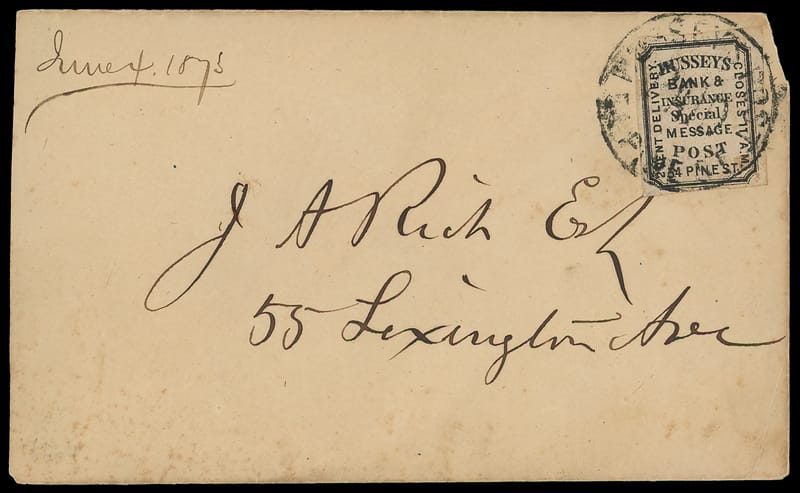 June 4. 1873
HUSSEYS
BANK &
INSURANCE
Special
MESSAGE
POST
54 PINE ST.
2 CENT DELIVERY.
CLOSES 11 A.M.
J A Rich Esq
55 Lexington Ave